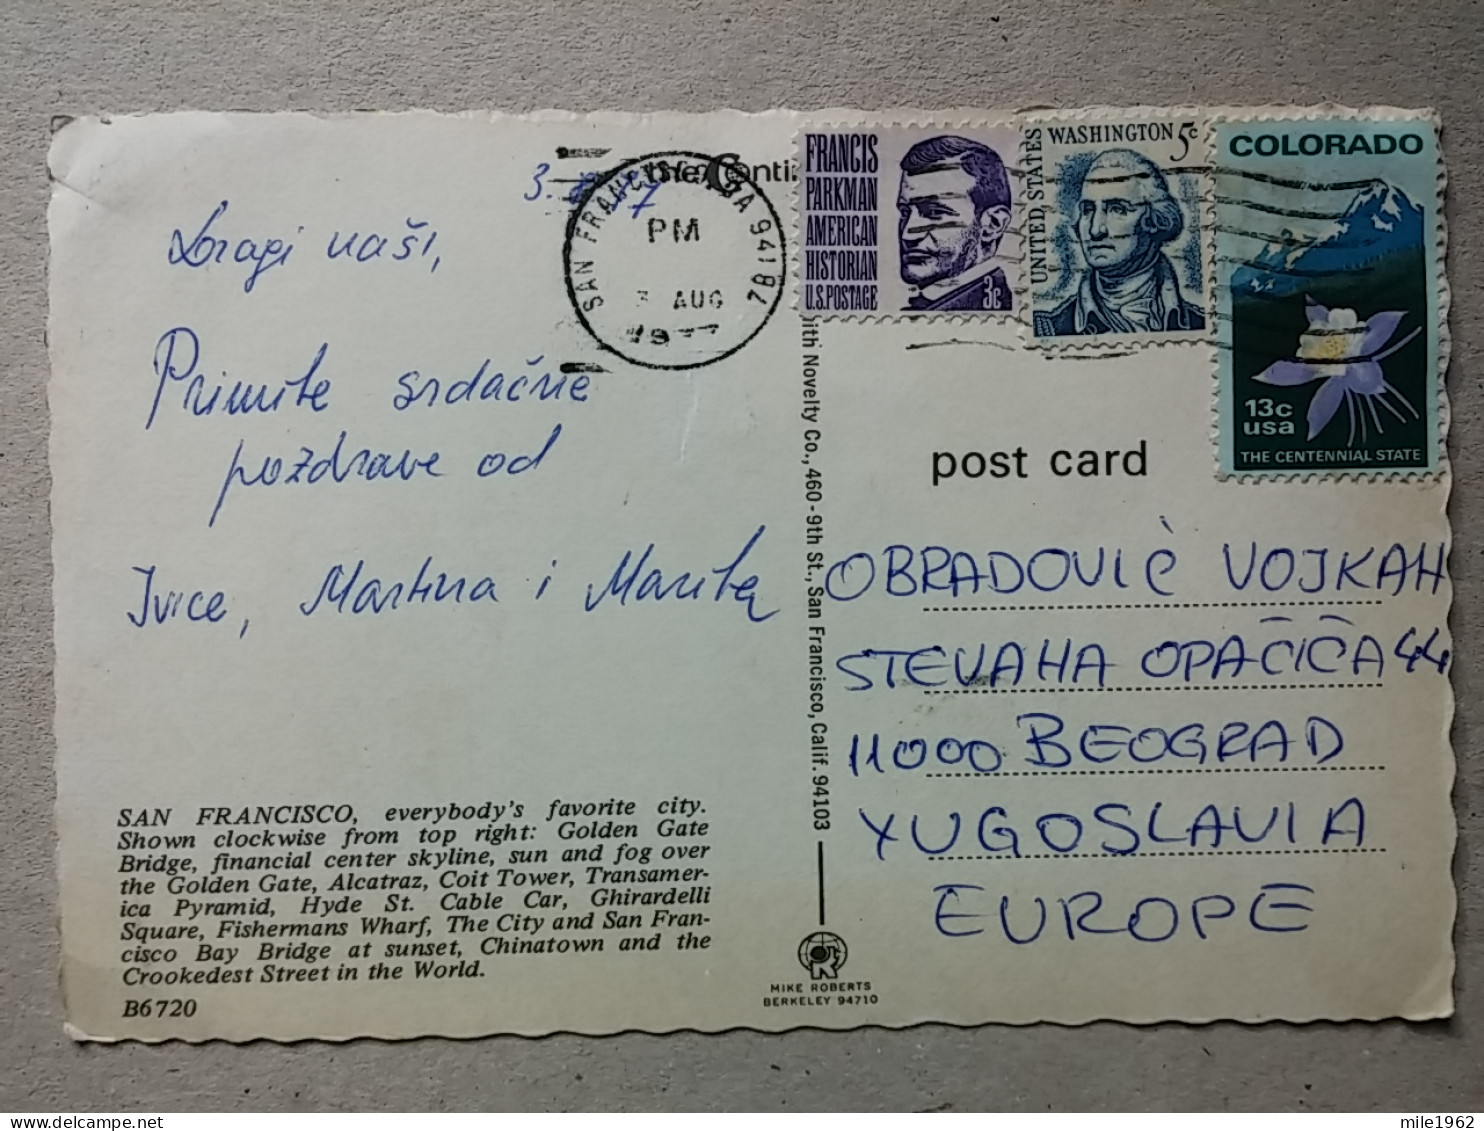 Dragi naši,
Primite srdačne
pozdrave od
Ivice, Martina i Marite
SAN FRANCISCO, everybody's favorite city.
Shown clockwise from top right: Golden Gate
Bridge, financial center skyline, sun and fog over
the Golden Gate, Alcatraz, Coit Tower, Transamer-
ica Pyramid, Hyde St. Cable Car, Ghirardelli
Square, Fishermans Wharf, The City and San Fran-
cisco Bay Bridge at sunset, Chinatown and the
Crookedest Street in the World.
B6720
SAN FRANCISCO, CA 941
PM
3 AUG
1977
FRANCIS
PARKMAN
AMERICAN
HISTORIAN
U.S. POSTAGE
3c
UNITED STATES
WASHINGTON 5c
COLORADO
13c
usa
THE CENTENNIAL STATE
ith Novelty Co., 460-9th St., San Francisco, Calif. 94103
post card
OBRADOVIĆ VOJKAH
STEVAHA OPAČIĆA 44
11000 BEOGRAD
YUGOSLAVIA
EUROPE
MIKE ROBERTS
BERKELEY 94710
mile1962